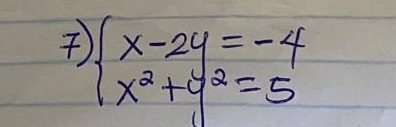 7) { x-2y=-4
x²+y²=5